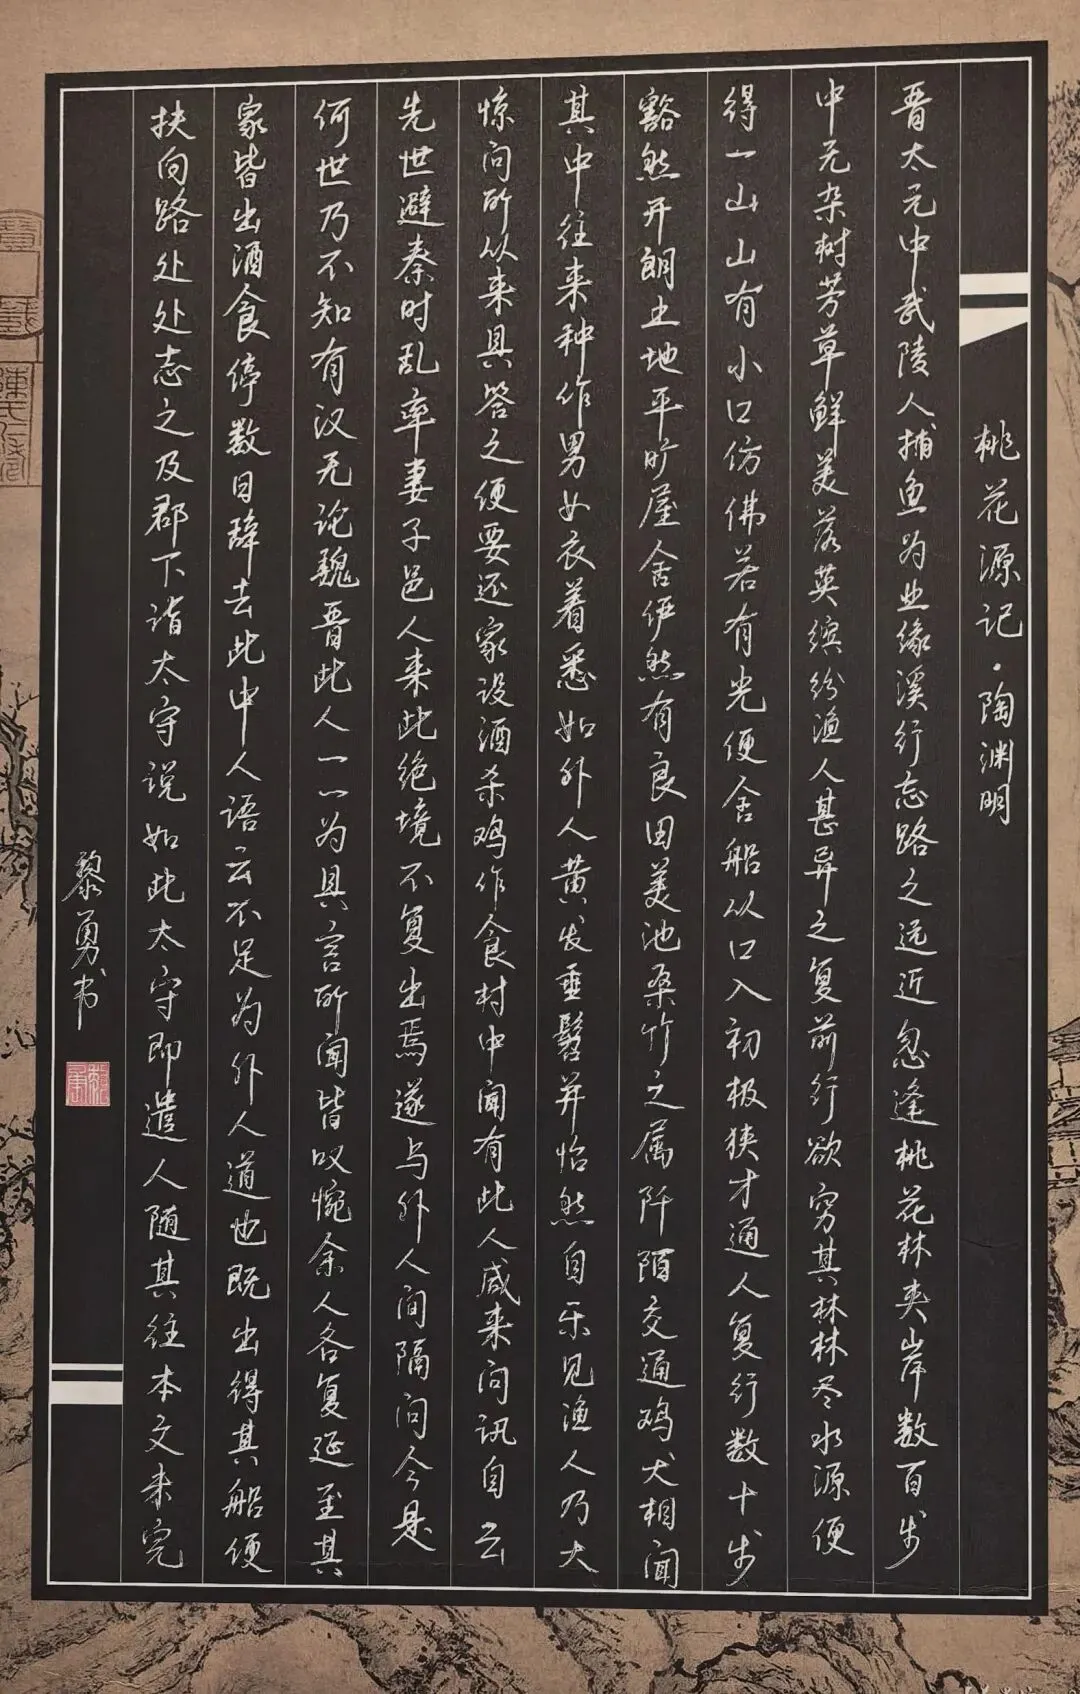 桃花源记·陶渊明
晋太元中武陵人捕鱼为业缘溪行忘路之远近忽逢桃花林夹岸数百步
中无杂树芳草鲜美落英缤纷渔人甚异之复前行欲穷其林林尽水源便
得一山山有小口仿佛若有光便舍船从口入初极狭才通人复行数十步
豁然开朗土地平旷屋舍俨然有良田美池桑竹之属阡陌交通鸡犬相闻
其中往来种作男女衣着悉如外人黄发垂髫并怡然自乐见渔人乃大
惊问所从来具答之便要还家设酒杀鸡作食村中闻有此人咸来问讯自云
先世避秦时乱率妻子邑人来此绝境不复出焉遂与外人间隔问今是
何世乃不知有汉无论魏晋此人一一为具言所闻皆叹惋余人各复延至其
家皆出酒食停数日辞去此中人语云不足为外人道也既出得其船便
扶向路处处志之及郡下诣太守说如此太守即遣人随其往本文未完
黎勇书